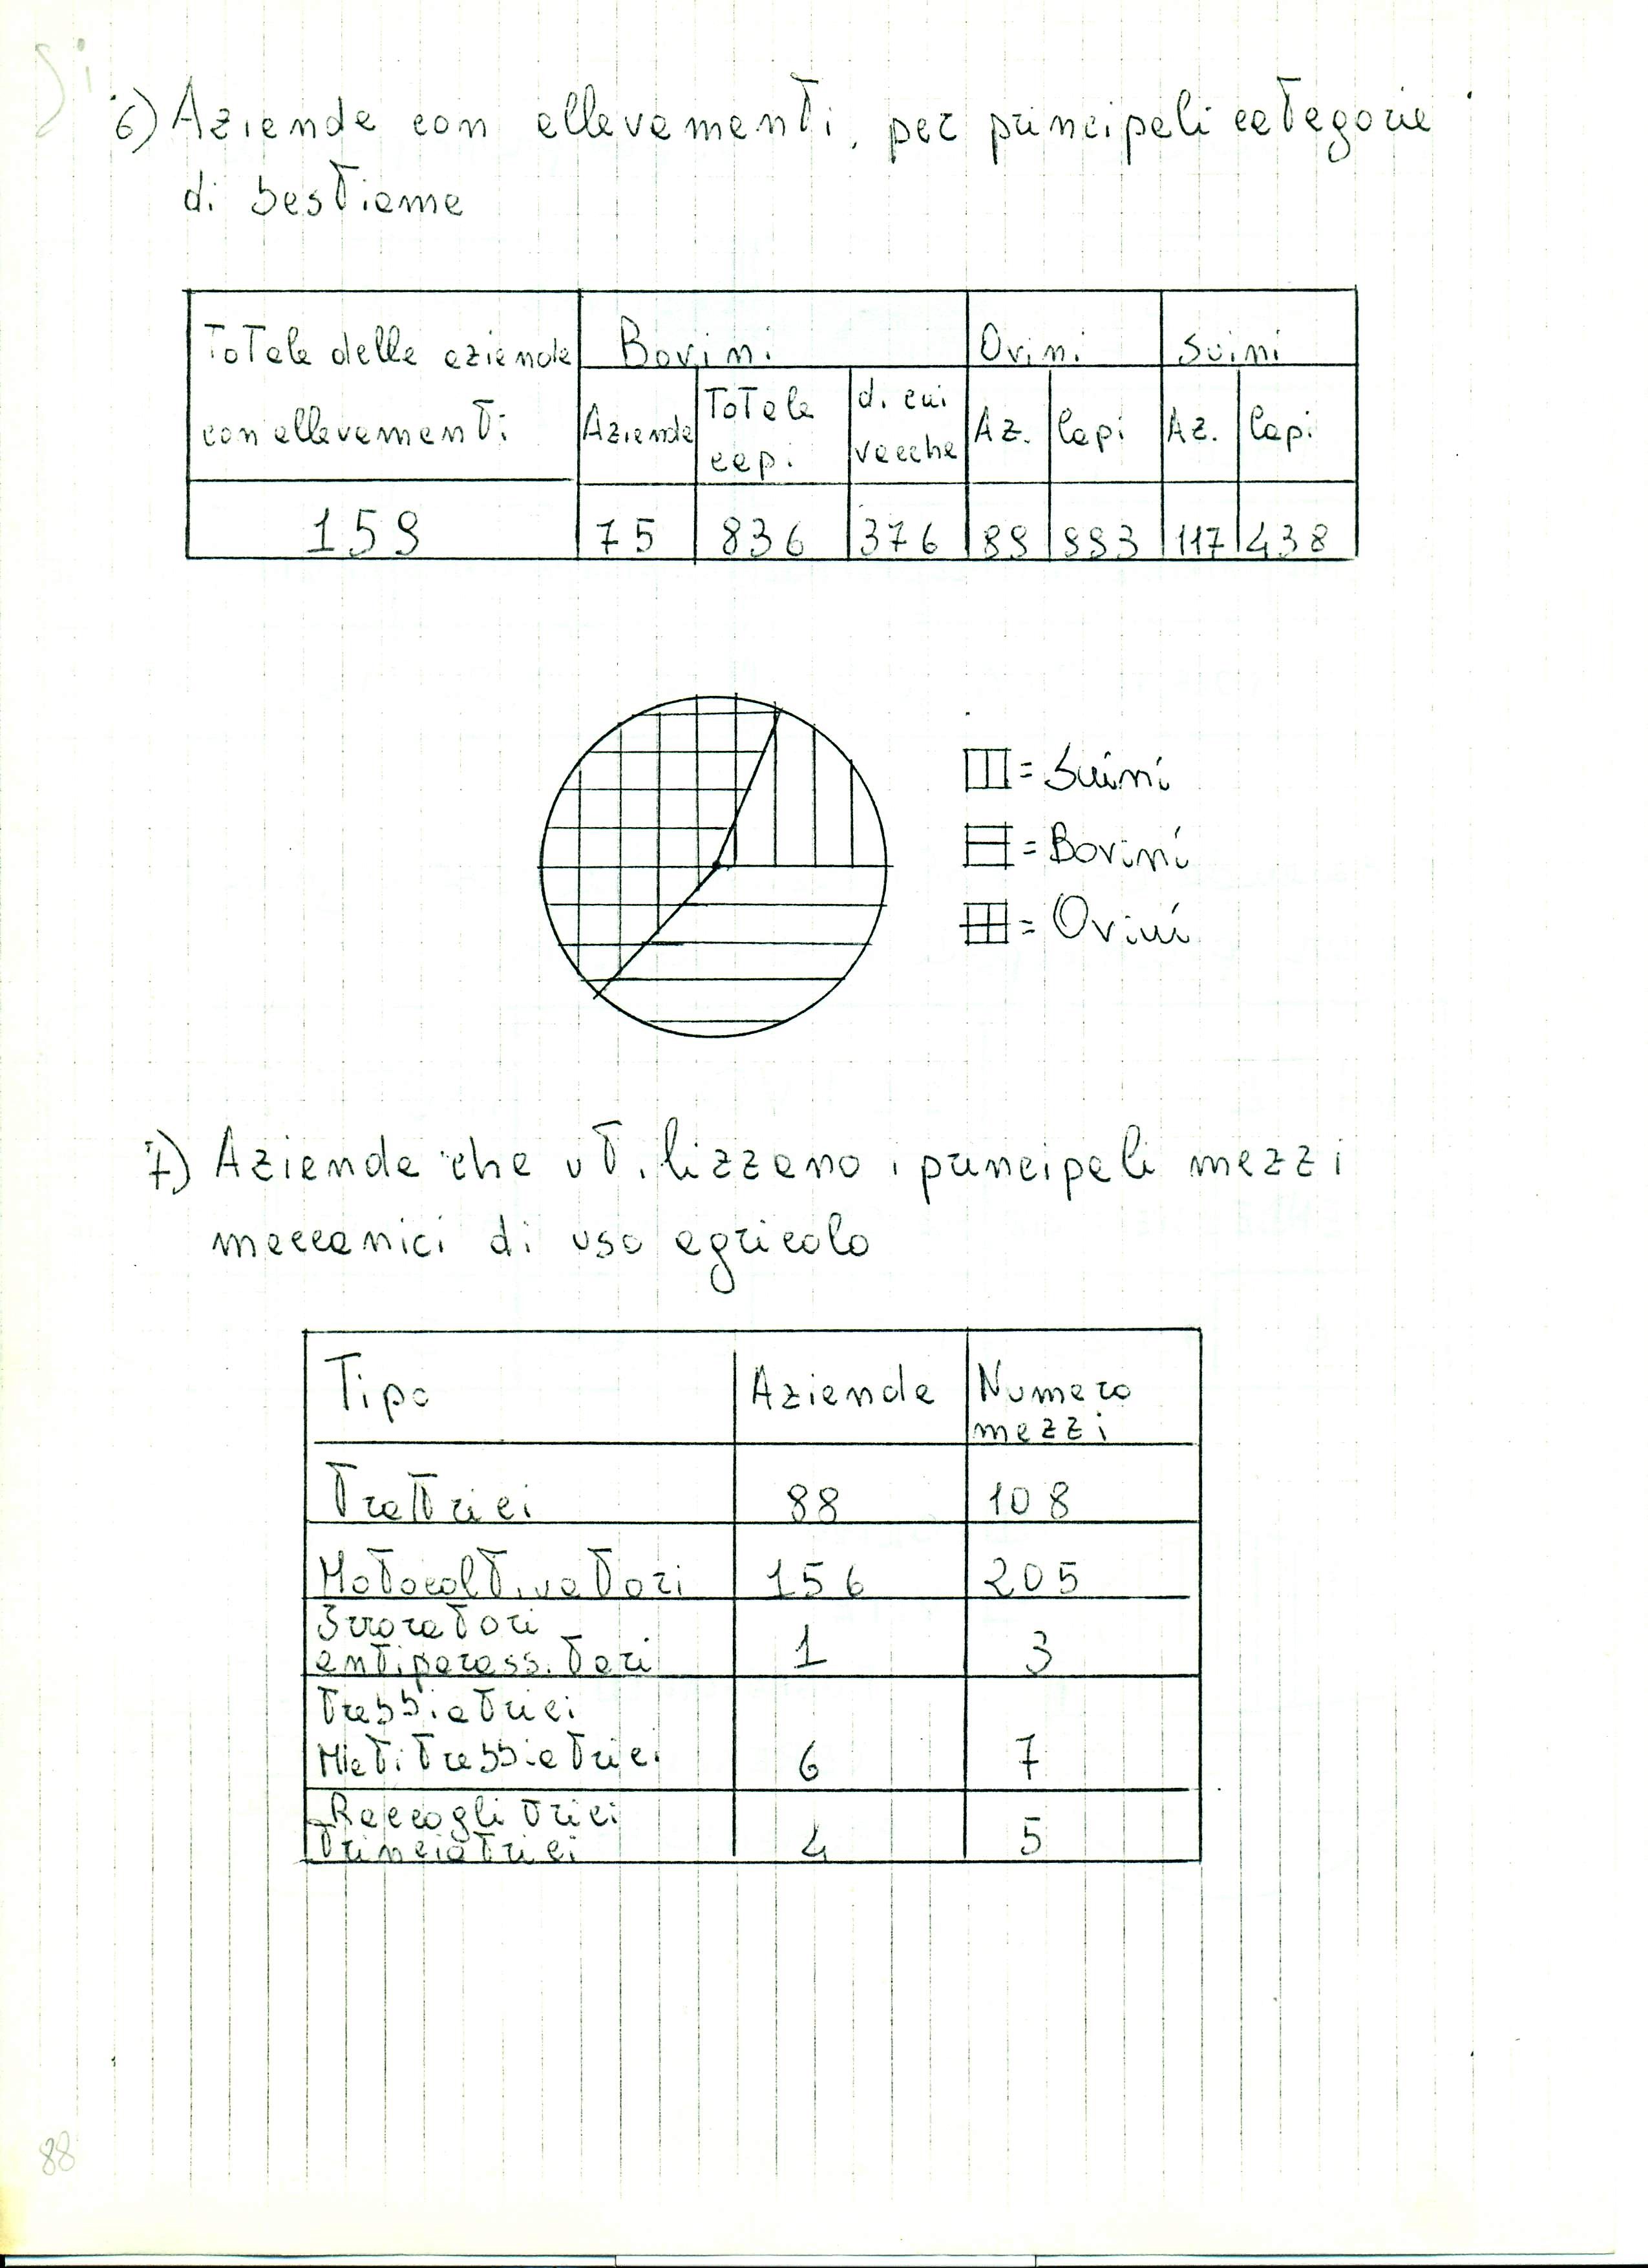 6) Aziende con allevamenti, per principali categorie
di bestiame
Totale delle aziende
con allevamenti
Bovini
Ovini
Suini
Aziende
Totale
capi
di cui
vacche
Az.
Capi
Az.
Capi
159 75 836 376 89 993 117 438
= Suini
= Bovini
= Ovini
7) Aziende che utilizzano i principali mezzi
meccanici di uso agricolo
Tipo Aziende Numero
mezzi
Trattrici 88 108
Motocoltivatori 156 205
Irroratori
antiparassitari 1 3
Trebbiatrici
Mietitrebbiatrici 6 7
Raccoglitrici
Trinciatrici 4 5
88